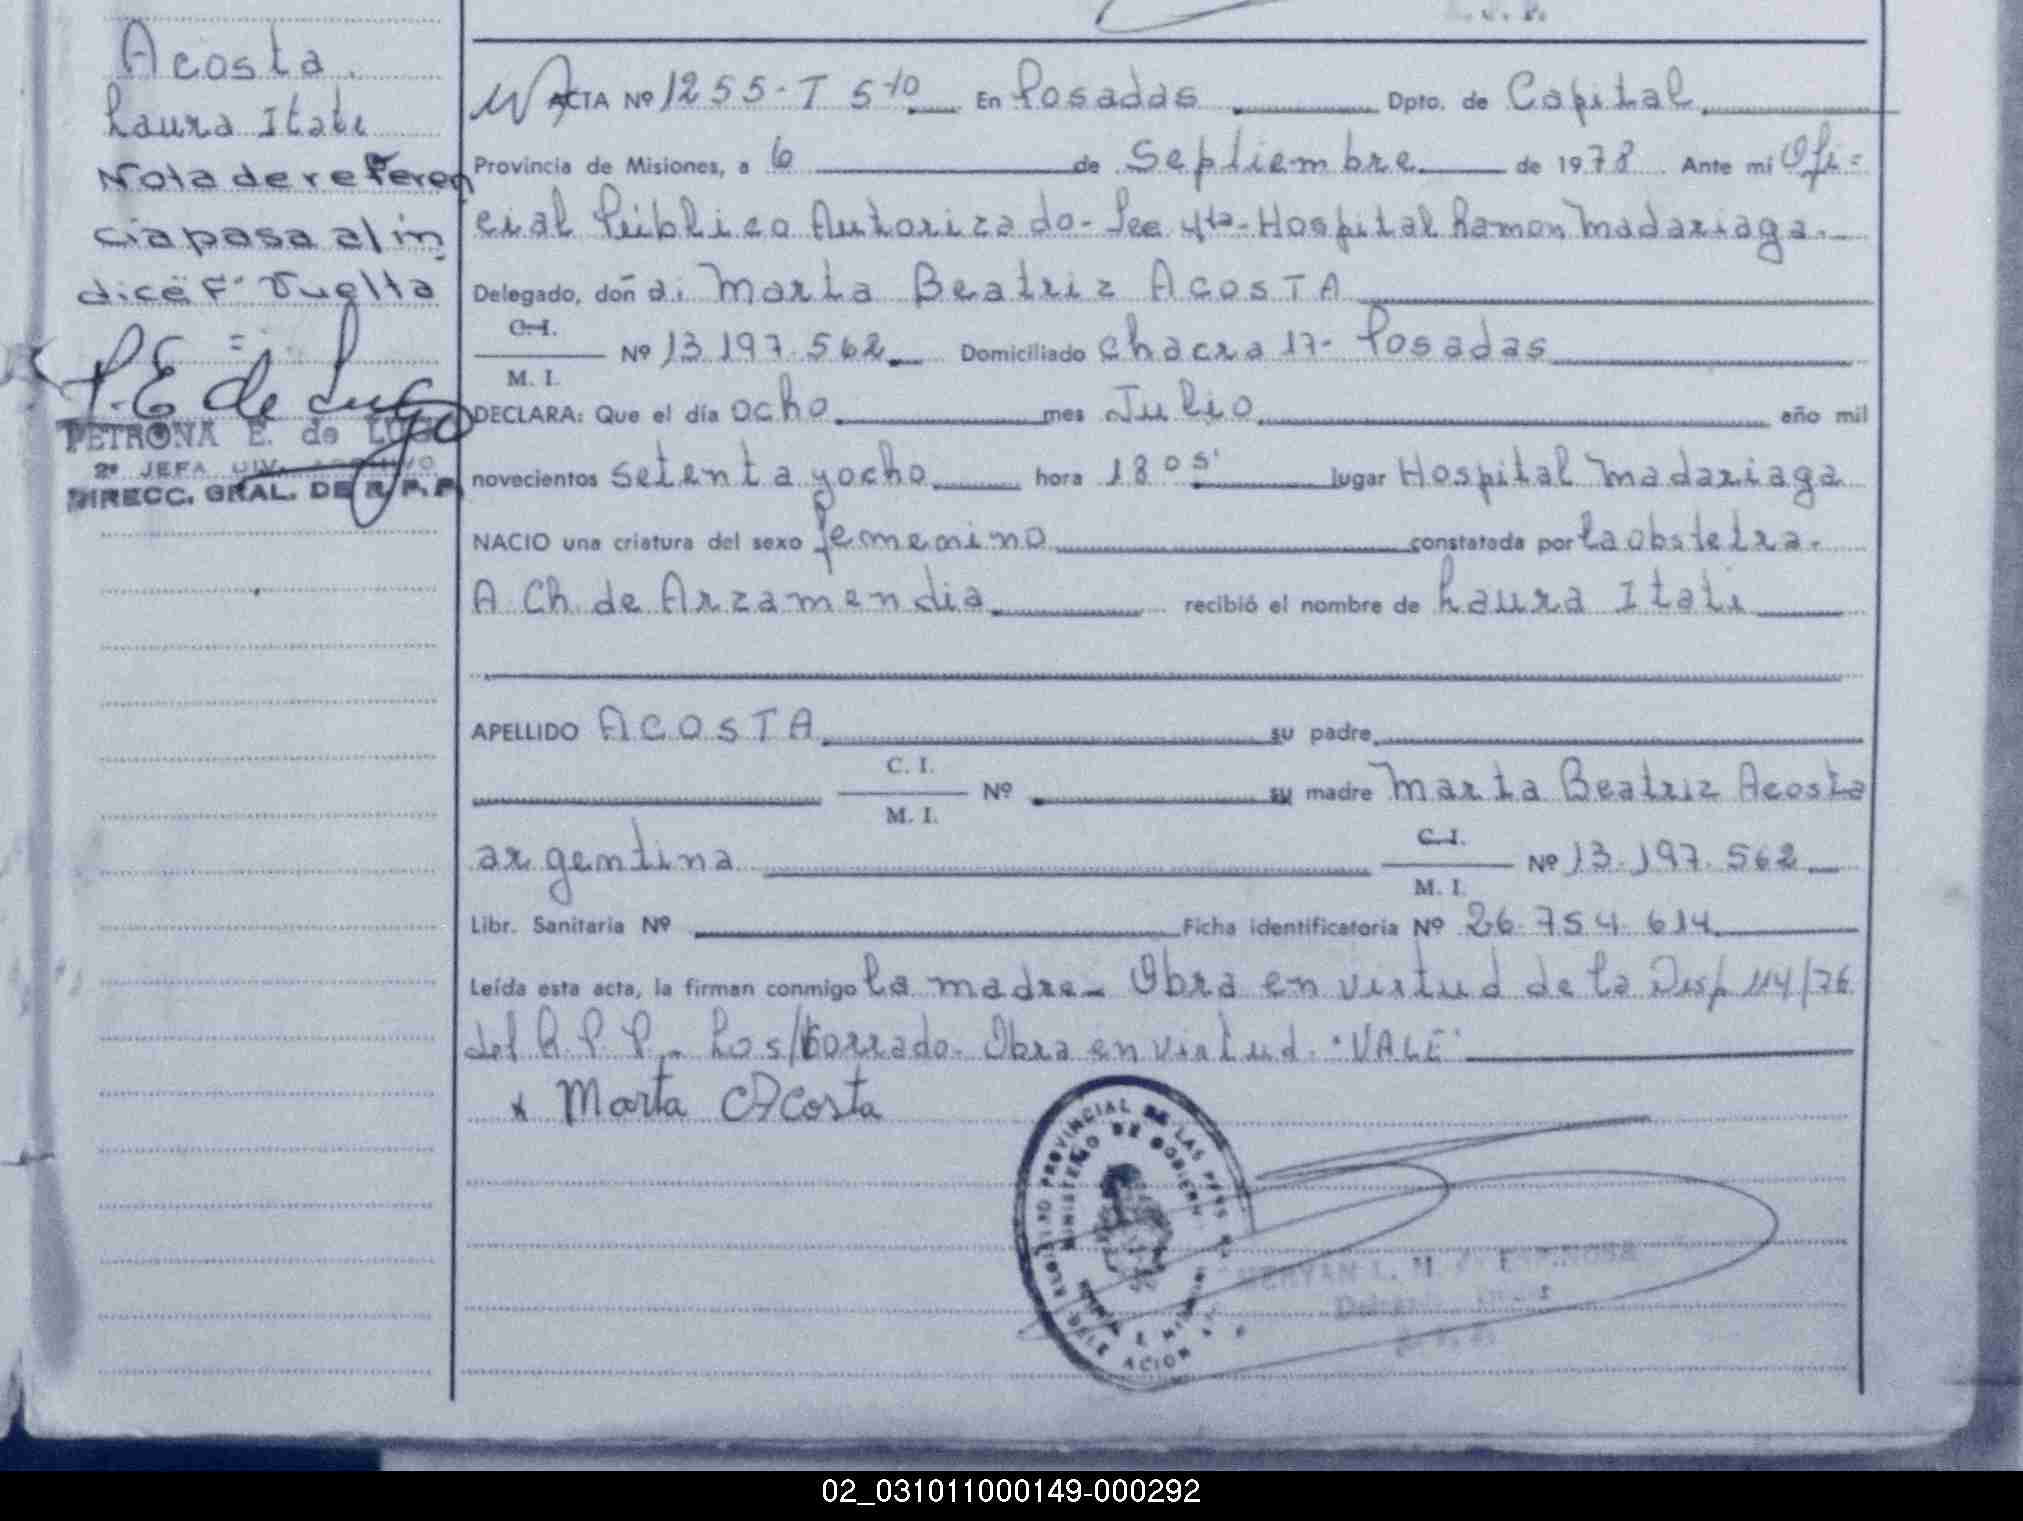 Acosta.
Laura Itati
Nota de referen
cia pasa al in
dice Fº Vuelta
P. E de Lugo
PETRONA E. de LUGO
2ª JEFA DIV. ARCHIVO
DIRECC. GRAL. DE R. P. P.
ACTA Nº 1255-T 5to En Posadas Dpto. de Capital
Provincia de Misiones, a 6 de Septiembre de 1978 Ante mi Ofi=
cial Público Autorizado- Sec 4ta- Hospital Ramon Madariaga.
Delegado, doña: Marta Beatriz ACOSTA
C.I.
Nº 13.197.562 Domiciliado Chacra 17- Posadas
M. I.
DECLARA: Que el día ocho mes Julio año mil
novecientos setenta y ocho hora 18 05' lugar Hospital Madariaga
NACIO una criatura del sexo femenino constatada por la obstetra.
A Ch de Arzamendia recibió el nombre de Laura Itati
APELLIDO ACOSTA su padre
C. I.
Nº su madre Marta Beatriz Acosta
M. I.
argentina C.I. Nº 13.197.562
M. I.
Libr. Sanitaria Nº Ficha identificatoria Nº 26.754.614
Leída esta acta, la firman conmigo la madre- Obra en virtud de la Disp 114/76
del R.P.P- Los/borrado. Obra en virtud. "VALE"
x Marta Acosta
REGISTRO PROVINCIAL DE LAS PERS
MINISTERIO DE GOBIERN
DELEGACION
02_031011000149-000292